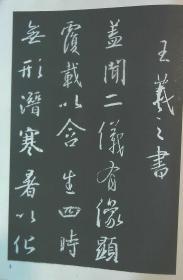 王羲之書
蓋聞二儀有像顯
覆載以含生四時
無形潛寒暑以化